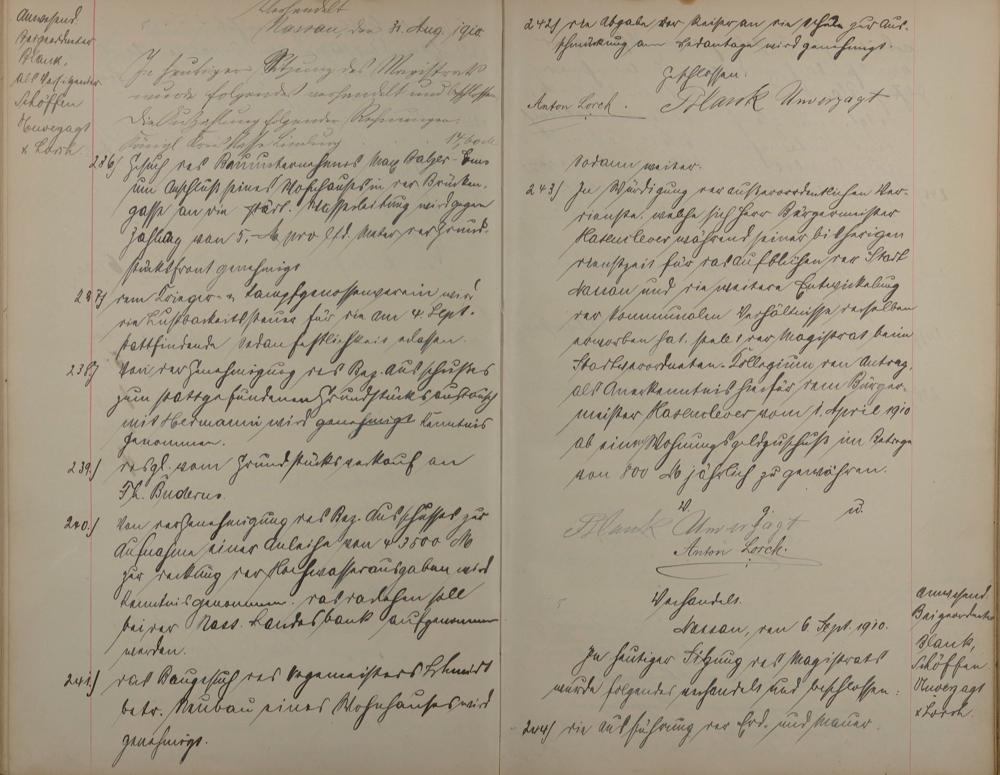 Anwesend.
Beigeordneter
Blank,
als Vorsitzender
Schöffen
Unverzagt
& Lorch.
Verhandelt
Nassau, den 31. Aug. 1910
In heutiger Sitzung des Magistrats
wurde folgendes verhandelt und beschlossen
Die Auszahlung folgender Rechnungen:
236) Gesuch des Bauunternehmers Max Balzer-Ems
um Anschluß seines Wohnhauses in der Brücken-
gasse an die städt. Wasserleitung wird gegen
Zahlung von 5,- M pro lfd. Meter der Grund-
stücksfront genehmigt
237) dem Krieger- u. Kampfgenossenverein wird
die Lustbarkeitssteuer für die am 4. Sept.
stattfindende Sedanfestlichkeit erlassen.
238) Von der Genehmigung des Bez. Ausschusses
zum stattgefundenen Grundstücksaustausch
mit Hermann wird genehmigt Kenntnis
genommen.
239.) desgl. vom Grundstücksverkauf an
Th. Buderus.
240.) Von der Genehmigung des Bez. Ausschusses zur
Aufnahme einer Anleihe von 43500 M
zur Deckung der Hochwasserausgaben wird
Kenntnis genommen. das Darlehen soll
bei der Nass. Landesbank aufgenommen
werden.
241.) das Baugesuch des Wegemeisters Schmidt
betr. Neubau eines Wohnhauses wird
genehmigt.
242) die Abgabe der an die Schule zur Aus-
schmückung am Sedantage wird genehmigt.
Geschlossen.
Anton Lorch. Blank Unverzagt
Sodann weiter.
243) In Würdigung der außerordentlichen Ver-
dienste, welche sich Herr Bürgermeister
Hasenclever während seiner bisherigen
Dienstzeit für das Aufblühen der Stadt
Nassau und die weitere Entwickelung
der kommunalen Verhältnisse derselben
erworben hat, stellt der Magistrat beim
Stadtverordneten-Kollegium den Antrag,
als Anerkenntnis hierfür dem Bürger-
meister Hasenclever vom 1. April 1910
ab einen Wohnungsgeldzuschuß im Betrage
von 800 M jährlich zu gewähren.
V. g. u.
Blank Unverzagt
Anton Lorch.
Verhandelt.
Nassau, den 6. Sept. 1910.
In heutiger Sitzung des Magistrats
wurde folgendes verhandelt und beschlossen:
244) die Ausführung der Erd- und Mauer-
Anwesend.
Beigeordneter
Blank,
Schöffen
Unverzagt
& Lorch.